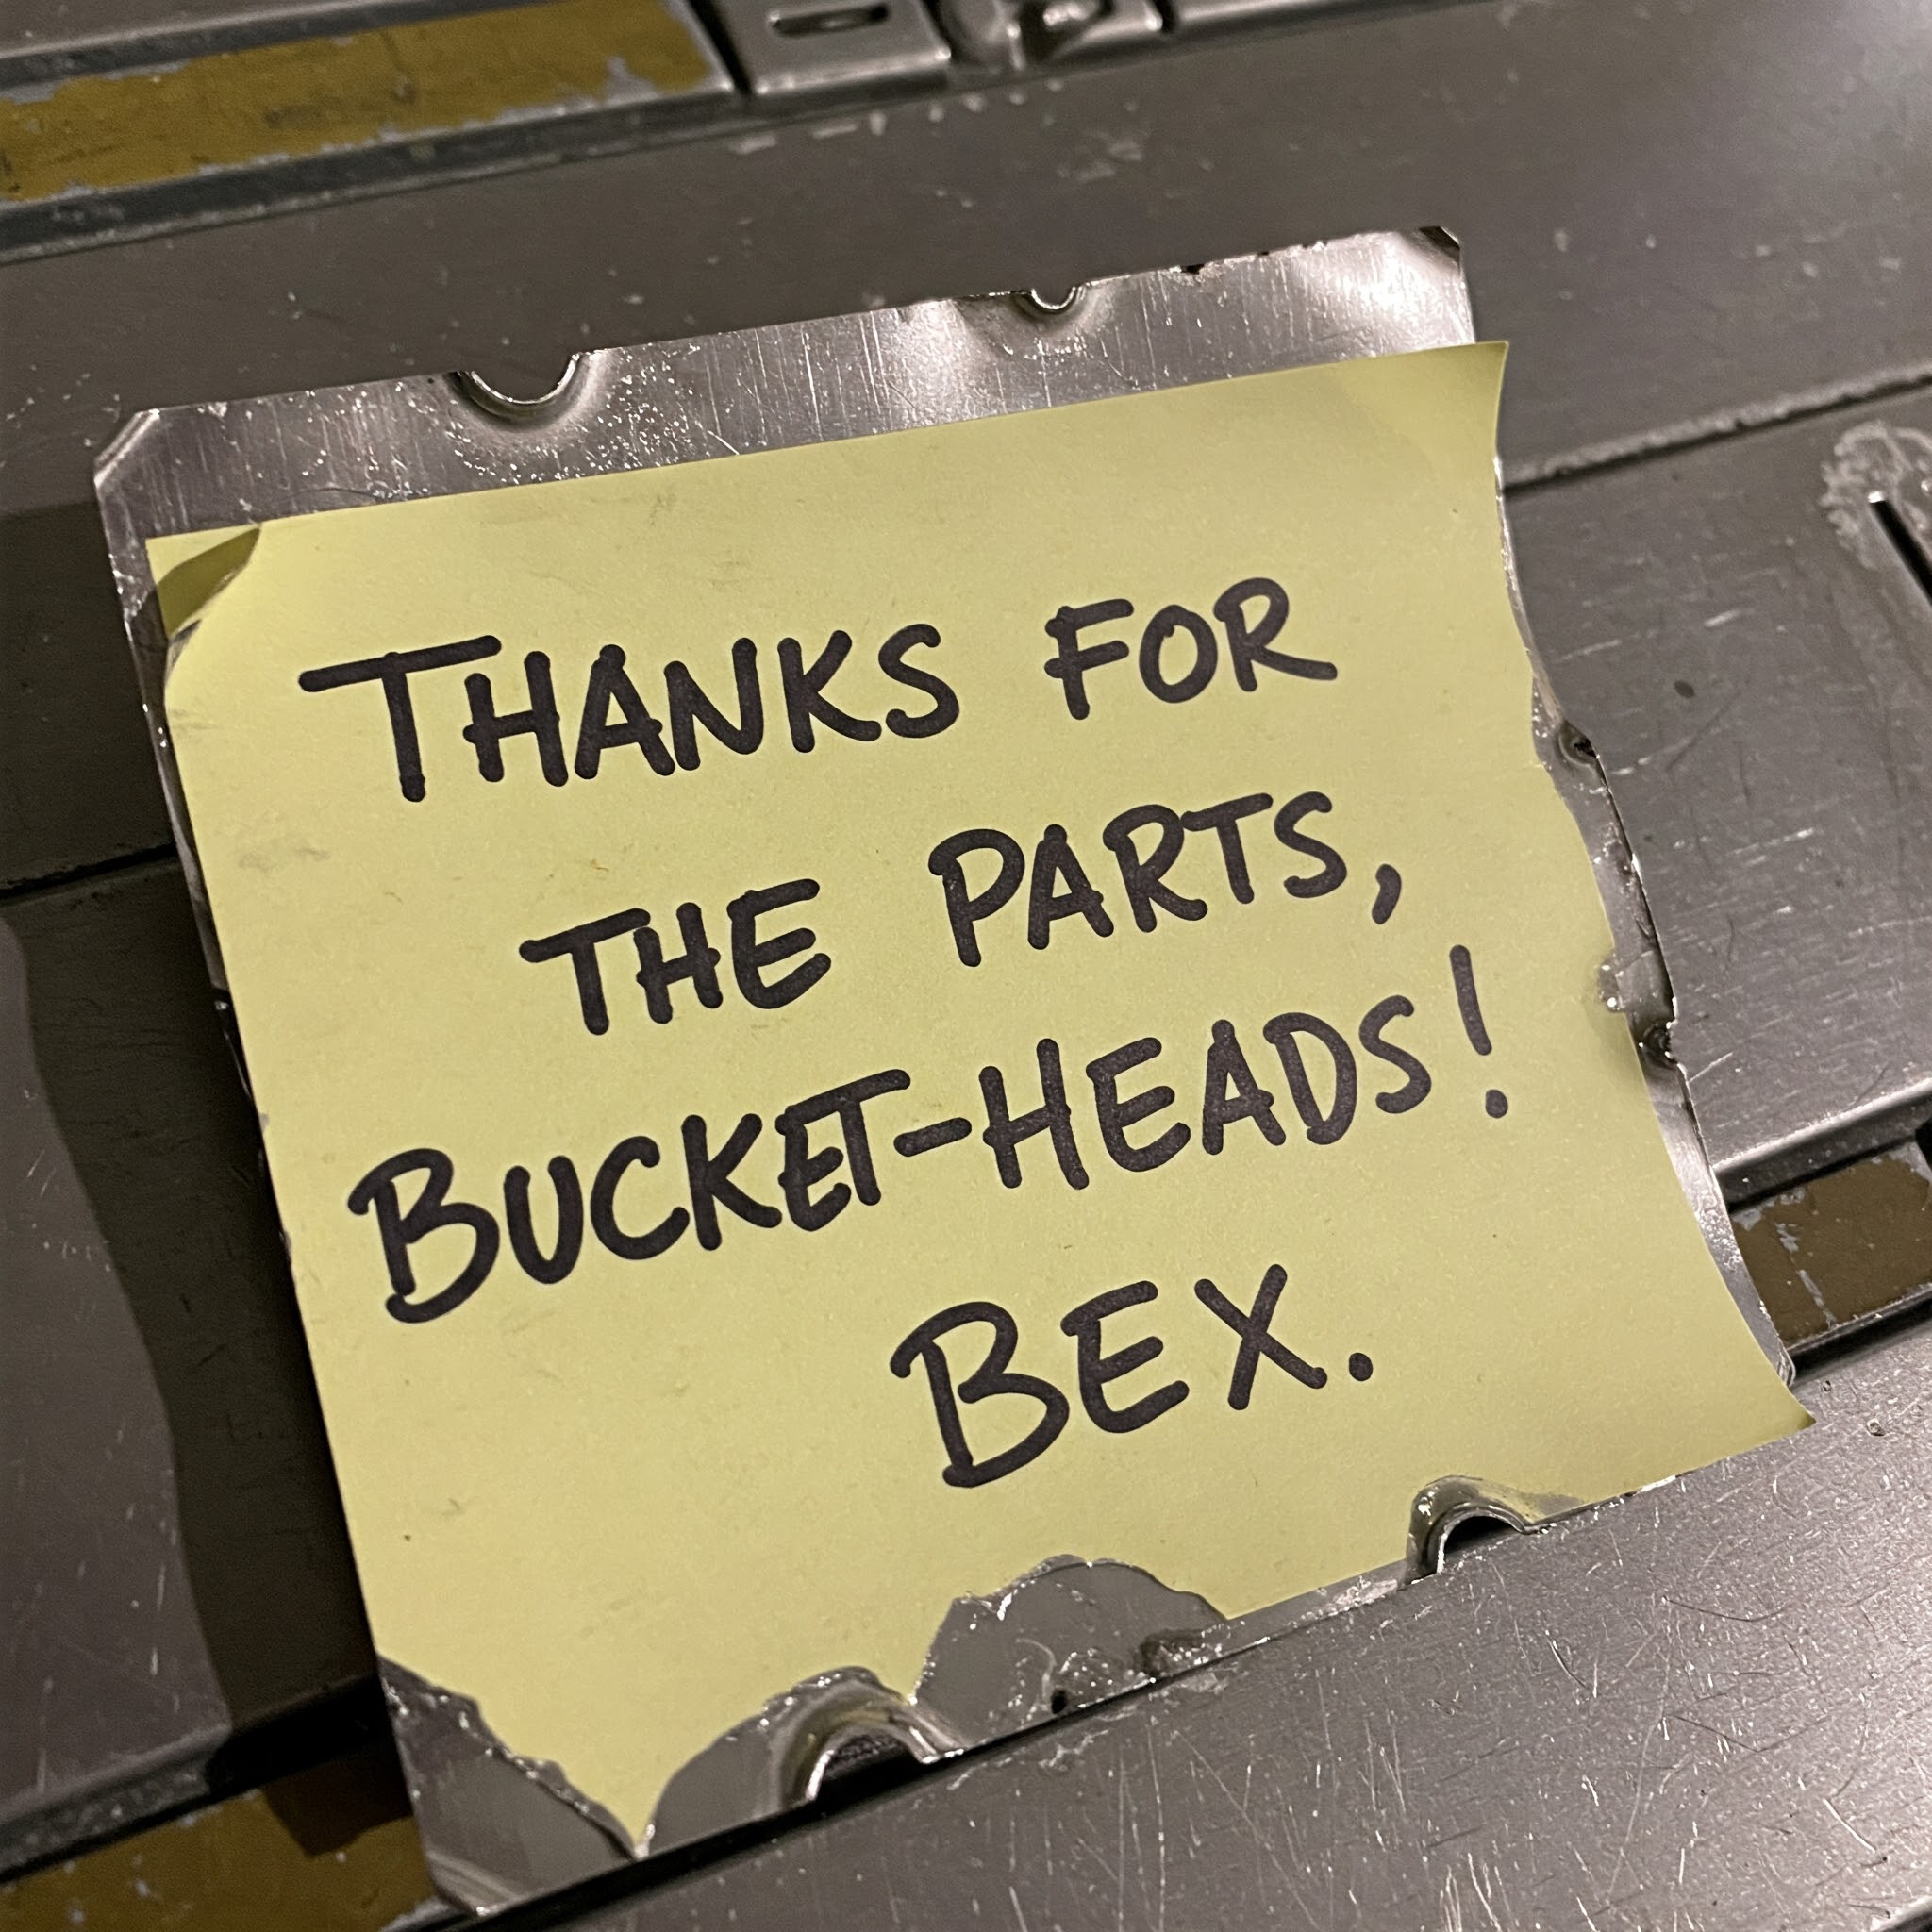 THANKS FOR
THE PARTS,
BUCKET-HEADS!
BEX.